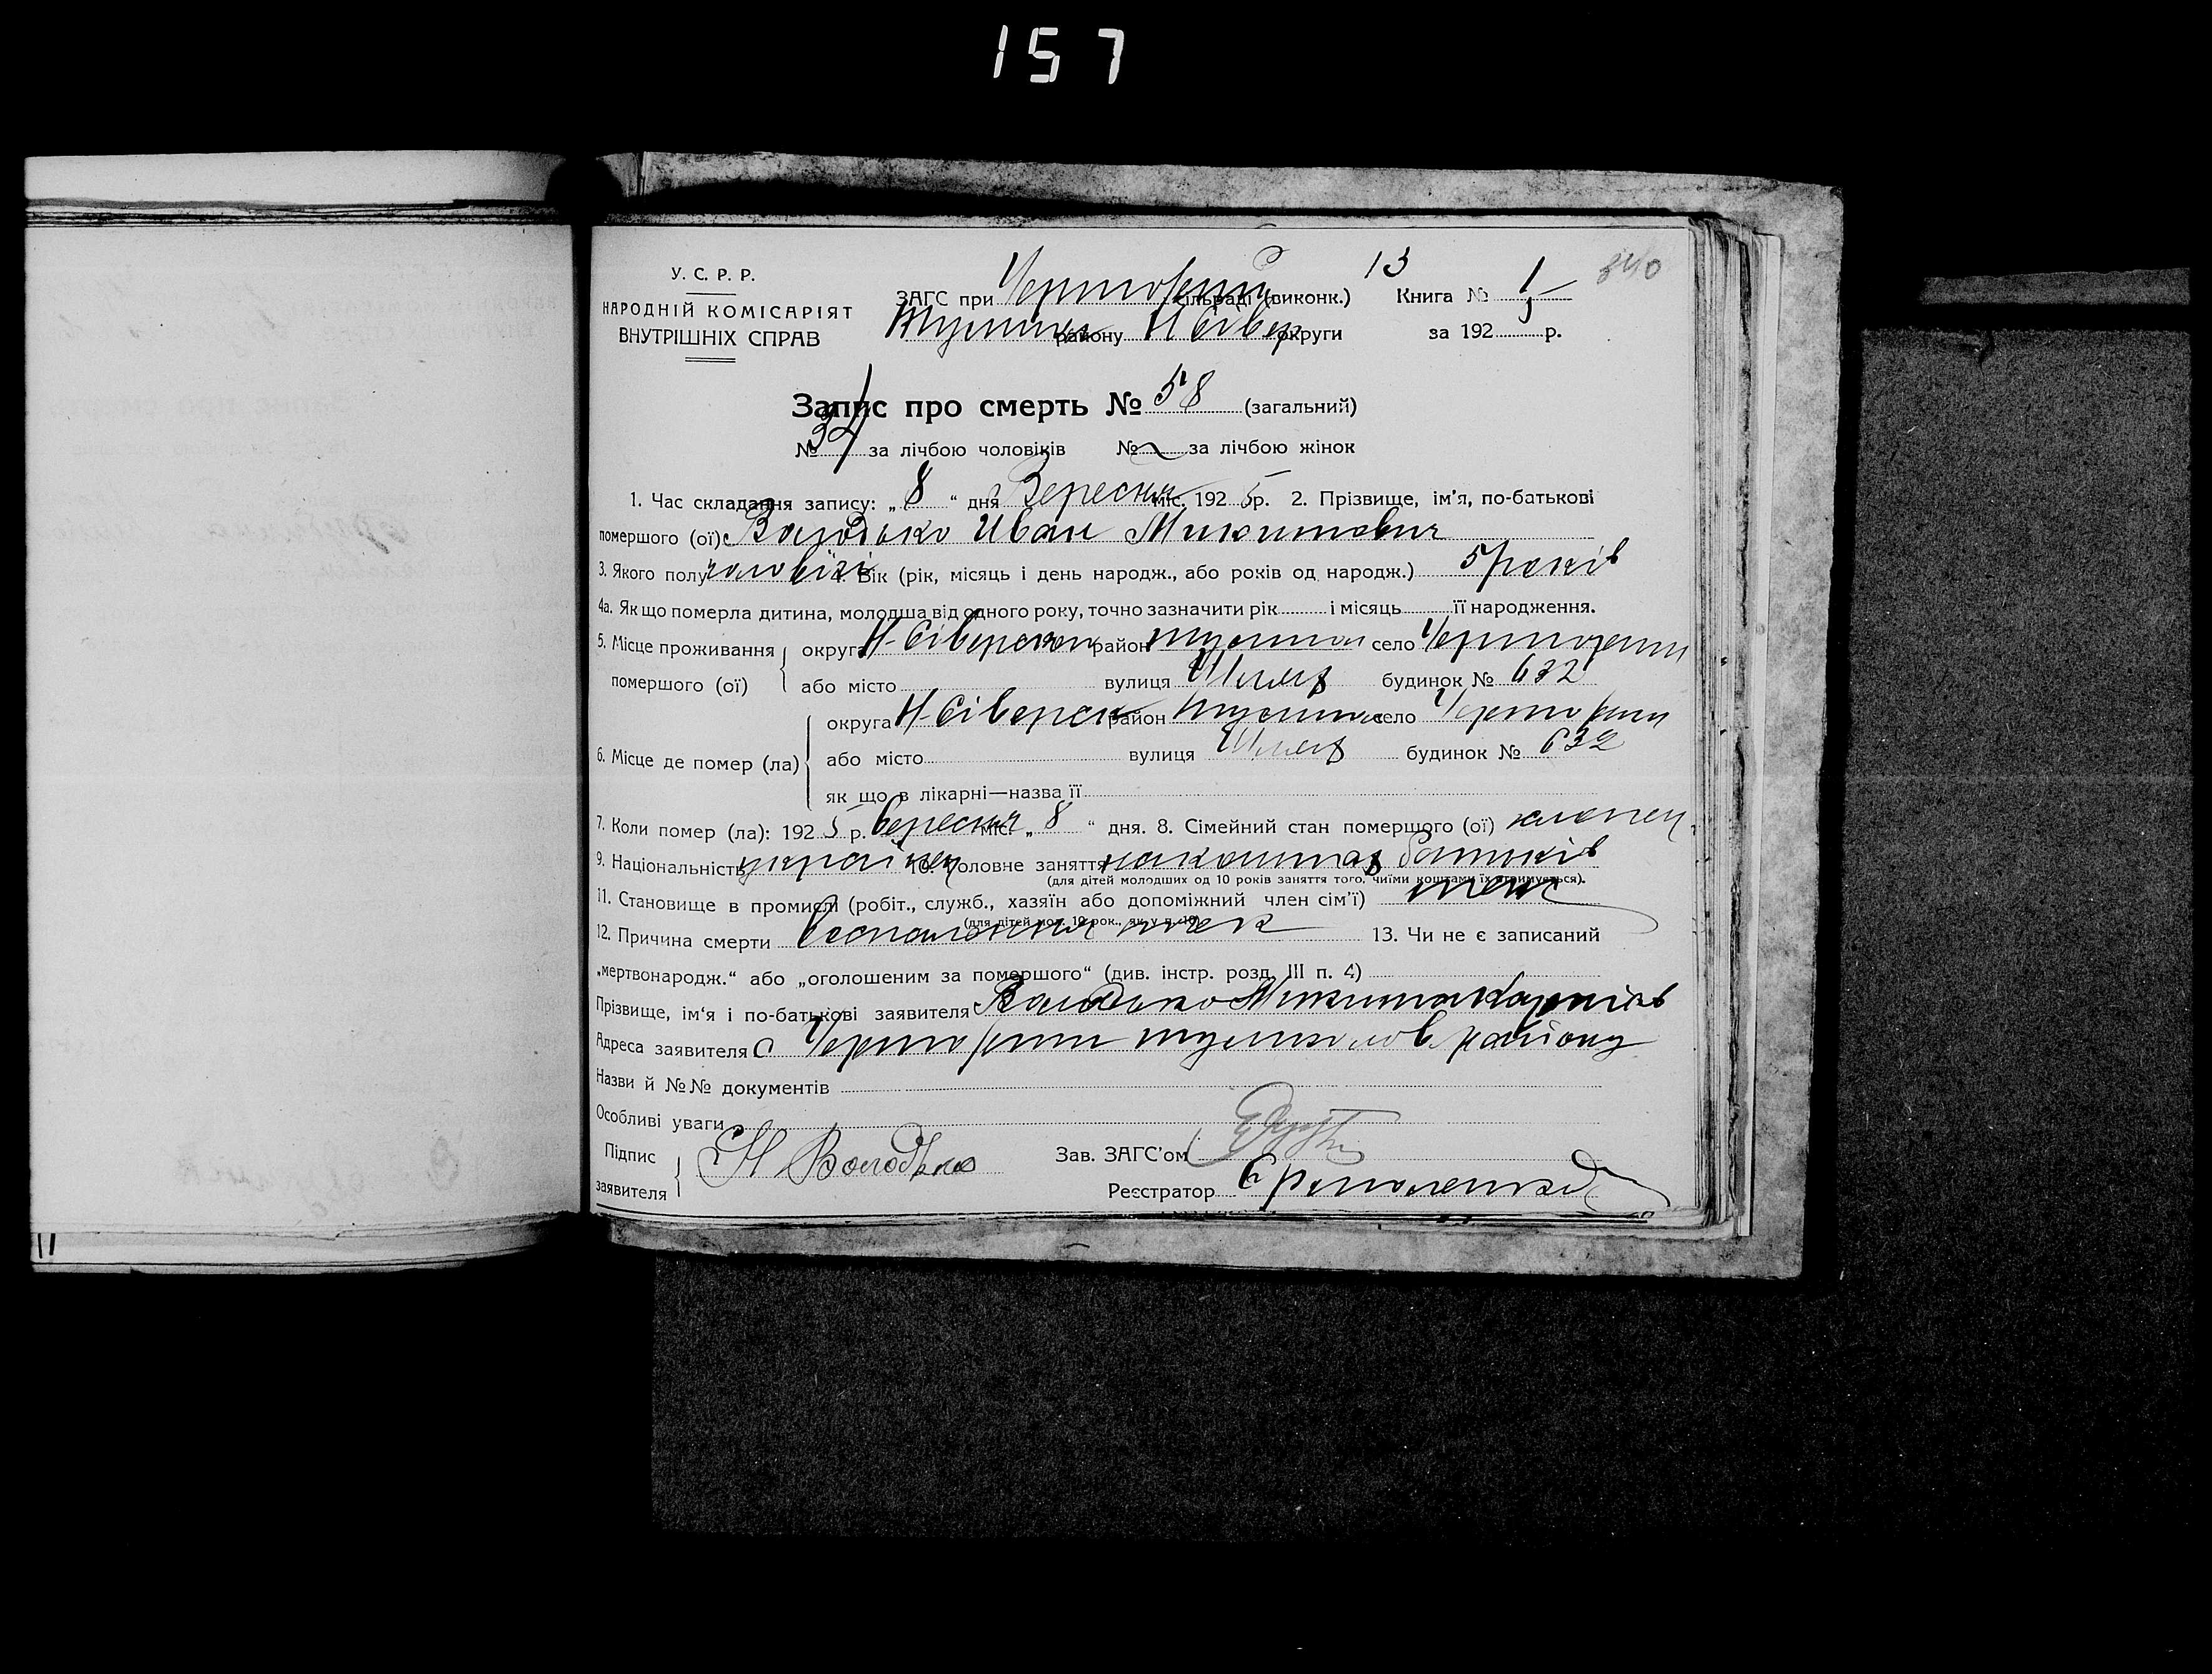 157
У. С. Р. Р.
НАРОДНІЙ КОМІСАРІЯТ
ВНУТРІШНІХ СПРАВ
ЗАГС при сільраді (виконк.) 13 Книга № 1
району Н Сівер округи за 1925 р.
340
Запис про смерть № 58 (загальний)
№ 34 за лічбою чоловіків № за лічбою жінок
1. Час складання запису: „8“ дня Вересня міс. 1925 р. 2. Прізвище, ім’я, по-батькові
помершого (ої) Володько Иван Микитович
3. Якого полу чоловічі 4. Вік (рік, місяць і день народж., або років од народж.) 5 років
4а. Як що померла дитина, молодша від одного року, точно зазначити рік і місяць її народження.
5. Місце проживання округа Н-Сіверскои район село
помершого (ої) або місто вулиця будинок № 632
округа Н-Сіверск район село
6. Місце де помер (ла) або місто вулиця будинок № 632
як що в лікарні—назва її
7. Коли помер (ла): 1925 р. вересня міс. „8“ дня. 8. Сімейний стан помершого (ої) хлопец
9. Національність українец 10. Головне заняття на коштах батьків
(для дітей молодших од 10 років заняття того, чиїми коштами їх утримується).
11. Становище в промислі (робіт., служб., хазяїн або допоміжний член сім’ї) теж
(для дітей мол. 10 рок., як у п. 10)
12. Причина смерти 13. Чи не є записаний
„мертвонародж.“ або „оголошеним за помершого“ (див. інстр. розд. III п. 4)
Прізвище, ім’я і по-батькові заявителя Володько Микита Карпів
Адреса заявителя с району
Назви й №№ документів
Особливі уваги
Підпис
заявителя Н Володько Зав. ЗАГС’ом
Реєстратор
11